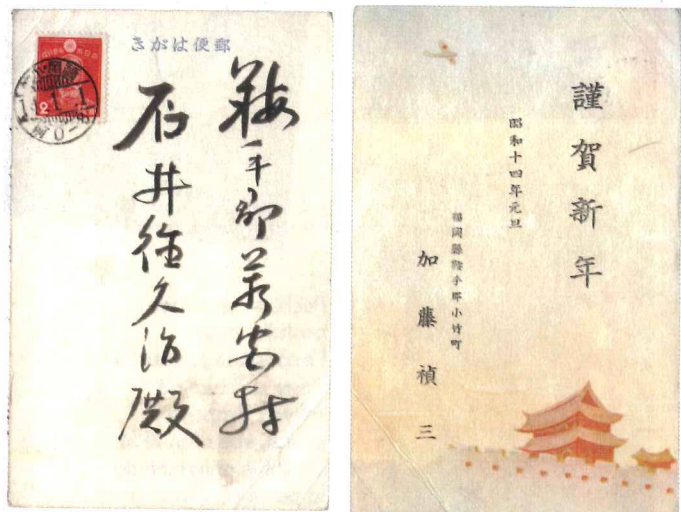 郵便はがき
鞍手郡 村
石井 久治殿
2
謹賀新年
昭和十四年元旦
福岡縣鞍手郡小竹町
加藤禎三